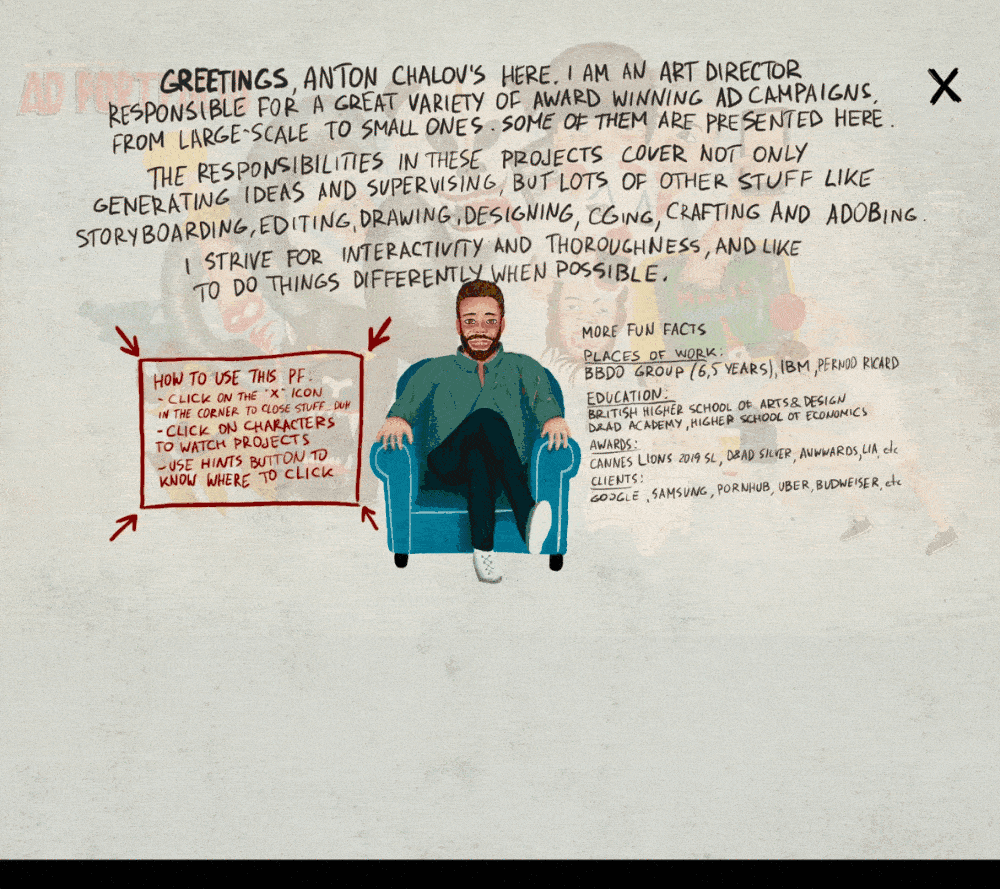 AD
GREETINGS, ANTON CHALOV'S HERE. I AM AN ART DIRECTOR
RESPONSIBLE FOR A GREAT VARIETY OF AWARD WINNING AD CAMPAIGNS.
FROM LARGE-SCALE TO SMALL ONES. SOME OF THEM ARE PRESENTED HERE.
THE RESPONSIBILITIES IN THESE PROJECTS COVER NOT ONLY
GENERATING IDEAS AND SUPERVISING, BUT LOTS OF OTHER STUFF LIKE
STORYBOARDING, EDITING, DRAWING, DESIGNING, CGing, CRAFTING AND ADOBING.
I STRIVE FOR INTERACTIVITY AND THOROUGHNESS, AND LIKE
TO DO THINGS DIFFERENTLY WHEN POSSIBLE.
X
HOW TO USE THIS PF:
- CLICK ON THE "X" ICON
IN THE CORNER TO CLOSE STUFF.. DUH
- CLICK ON CHARACTERS
TO WATCH PROJECTS
- USE HINTS BUTTON TO
KNOW WHERE TO CLICK
MORE FUN FACTS
PLACES OF WORK:
BBDO GROUP (6,5 YEARS), IBM, PERNOD RICARD
EDUCATION:
BRITISH HIGHER SCHOOL Of ARTS & DESIGN
D&AD ACADEMY, HIGHER SCHOOL OF ECONOMICS
AWARDS:
CANNES LIONS 2019 SL, D&AD SILVER, AWWWARDS, LIA, etc
CLIENTS:
GOOGLE, SAMSUNG, PORNHUB, UBER, BUDWEISER, etc